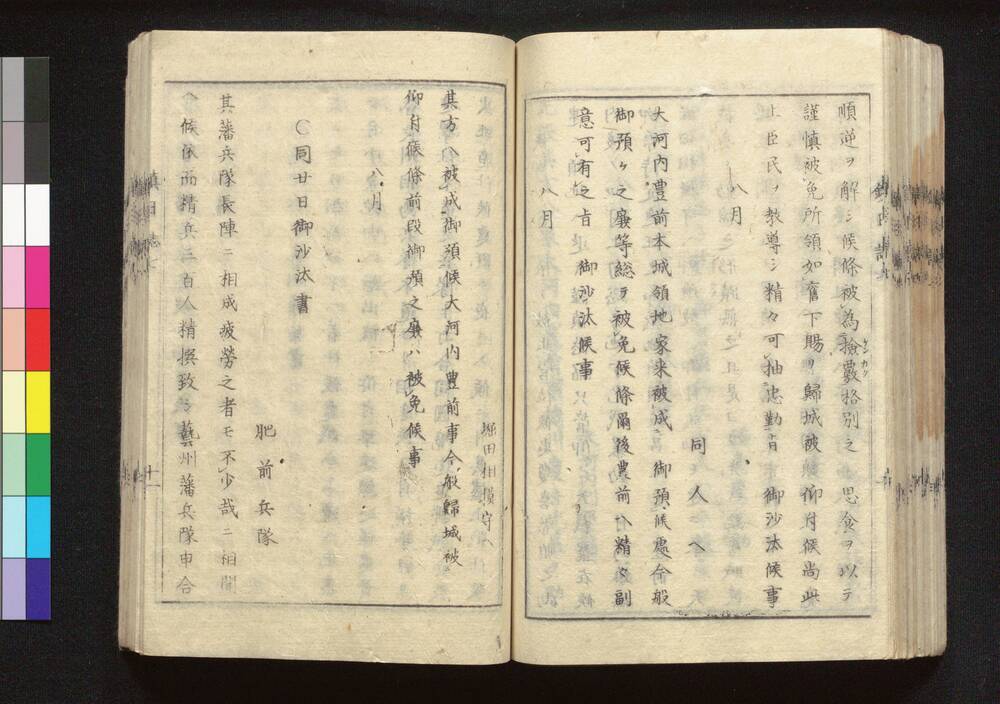 順逆ヲ解シ候條被為撿覈格別之 思食ヲ以テ
ケンカク
謹慎被免所領如舊下賜リ歸城被 仰付候尚此
上臣民ヲ教導シ精々可抽忠勤旨 御沙汰候事
八月
同人ヘ
大河内豊前本城領地家来被成 御預候處今般
御預ケ之廉等総テ被免候條爾後豊前ヘ精々副
意可有之旨 御沙汰候事
八月
堀田相摸守ヘ
其方ヘ被成御預候大河内豊前事今般歸城被
仰付候條前段御預之廉ハ被免候事
八月
〇同廿日御沙汰書
肥前兵隊
其藩兵隊長陣ニ相成疲勞之者モ不少哉ニ相聞
ヘ候依而精兵三百人精撰致シ藝州藩兵隊申合
十一